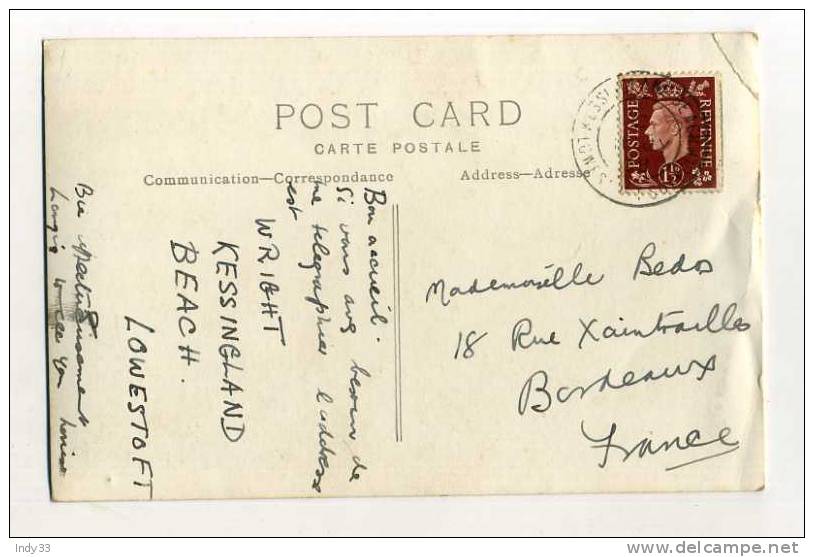 POST CARD
CARTE POSTALE
Communication—Correspondance
Address—Adresse
POSTAGE
REVENUE
1½D
Bon accueil.
Si vous avez besoin de
me telegraphier l'address
est
WRIGHT
KESSINGLAND
BEACH.
LOWESTOFT
Bie affectueusement
to see you
Mademoiselle Bedos
18 Rue Xaintrailles
Bordeaux
France
Indy33
delcampe.net